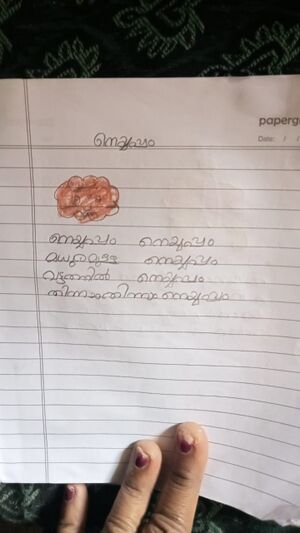 paperg
Date: / /
നെയ്യപ്പം
നെയ്യപ്പം നെയ്യപ്പം
മധുരമുള്ള നെയ്യപ്പം
വട്ടത്തിൽ നെയ്യപ്പം
തിന്നാംതിന്നാം നെയ്യപ്പം